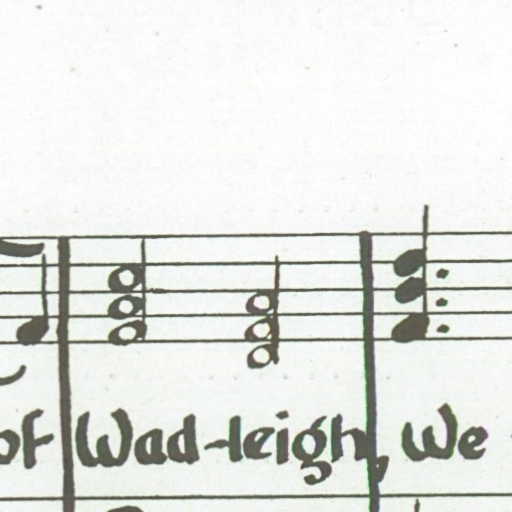 of Wad-leigh, We